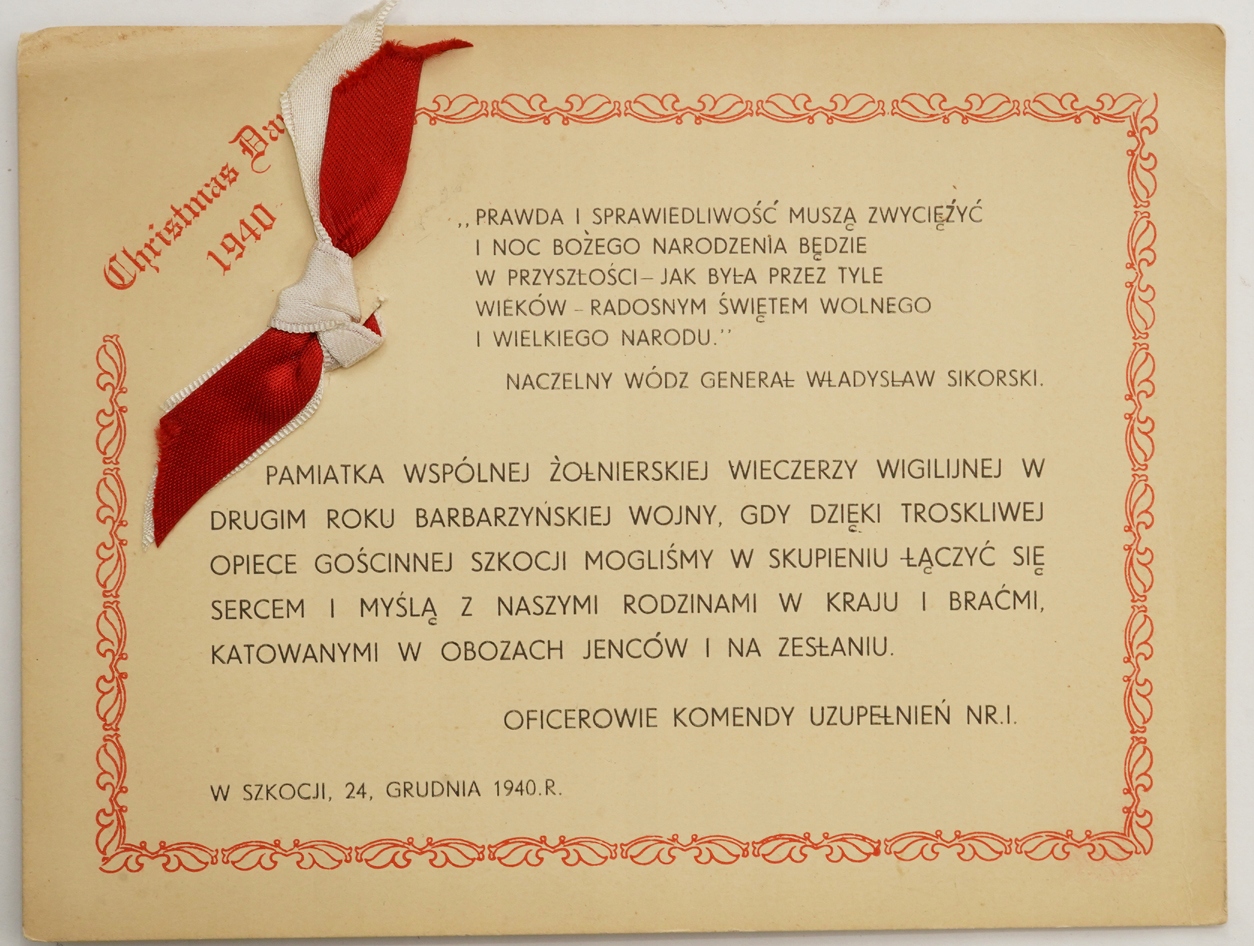 Christmas Day
1940
„PRAWDA I SPRAWIEDLIWOŚĆ MUSZĄ ZWYCIĘŻYĆ
I NOC BOŻEGO NARODZENIA BĘDZIE
W PRZYSZŁOŚCI – JAK BYŁA PRZEZ TYLE
WIEKÓW – RADOSNYM ŚWIĘTEM WOLNEGO
I WIELKIEGO NARODU.”
NACZELNY WÓDZ GENERAŁ WŁADYSŁAW SIKORSKI.
PAMIATKA WSPÓLNEJ ŻOŁNIERSKIEJ WIECZERZY WIGILIJNEJ W
DRUGIM ROKU BARBARZYŃSKIEJ WOJNY, GDY DZIĘKI TROSKLIWEJ
OPIECE GOŚCINNEJ SZKOCJI MOGLIŚMY W SKUPIENIU ŁĄCZYĆ SIĘ
SERCEM I MYŚLĄ Z NASZYMI RODZINAMI W KRAJU I BRAĆMI,
KATOWANYMI W OBOZACH JENCÓW I NA ZESŁANIU.
OFICEROWIE KOMENDY UZUPEŁNIEŃ NR.I.
W SZKOCJI, 24, GRUDNIA 1940.R.